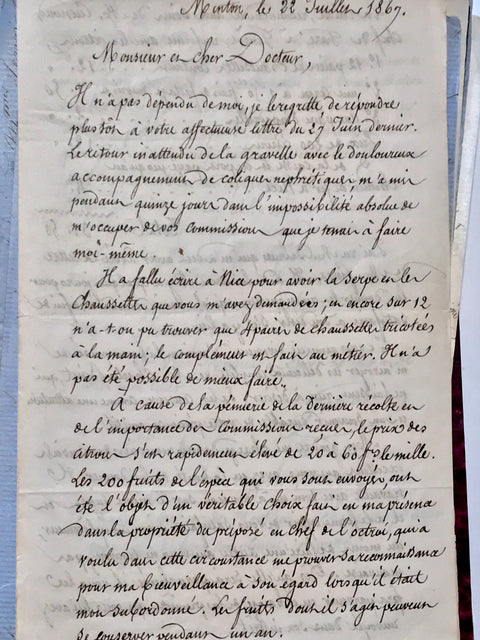 Menton, le 22 Juillet 1867.
Monsieur et cher Docteur,
Il n'a pas dépendu de moi, je le regrette de répondre
plus tôt à votre affectueuse lettre du 27 Juin dernier.
Le retour inattendu de la gravelle avec le douloureux
accompagnement de coliques néphrétiques m'a mis
pendant quinze jours dans l'impossibilité absolue de
m'occuper de vos commissions que je tenais à faire
moi-même.
Il a fallu écrire à Nice pour avoir la serpe et les
Chaussettes que vous m'avez demandées; et encore sur 12
n'a-t-on pu trouver que 4 paires de chaussettes tricotées
à la main; le complément est fait au métier. Il n'a
pas été possible de mieux faire.
A cause de la pénurie de la dernière récolte et
de l'importance des commissions reçues, le prix des
citrons s'est rapidement élevé de 20 à 60 fcs le mille.
Les 200 fruits de l'espèce qui vous sont envoyés, ont
été l'objet d'un véritable choix fait en ma présence
dans la propriété du préposé en chef de l'octroi, qui a
voulu dans cette circonstance me prouver sa reconnaissance
pour ma bienveillance à son égard lorsqu'il était
mon subordonné. Les fruits dont il s'agit peuvent
se conserver pendant un an.